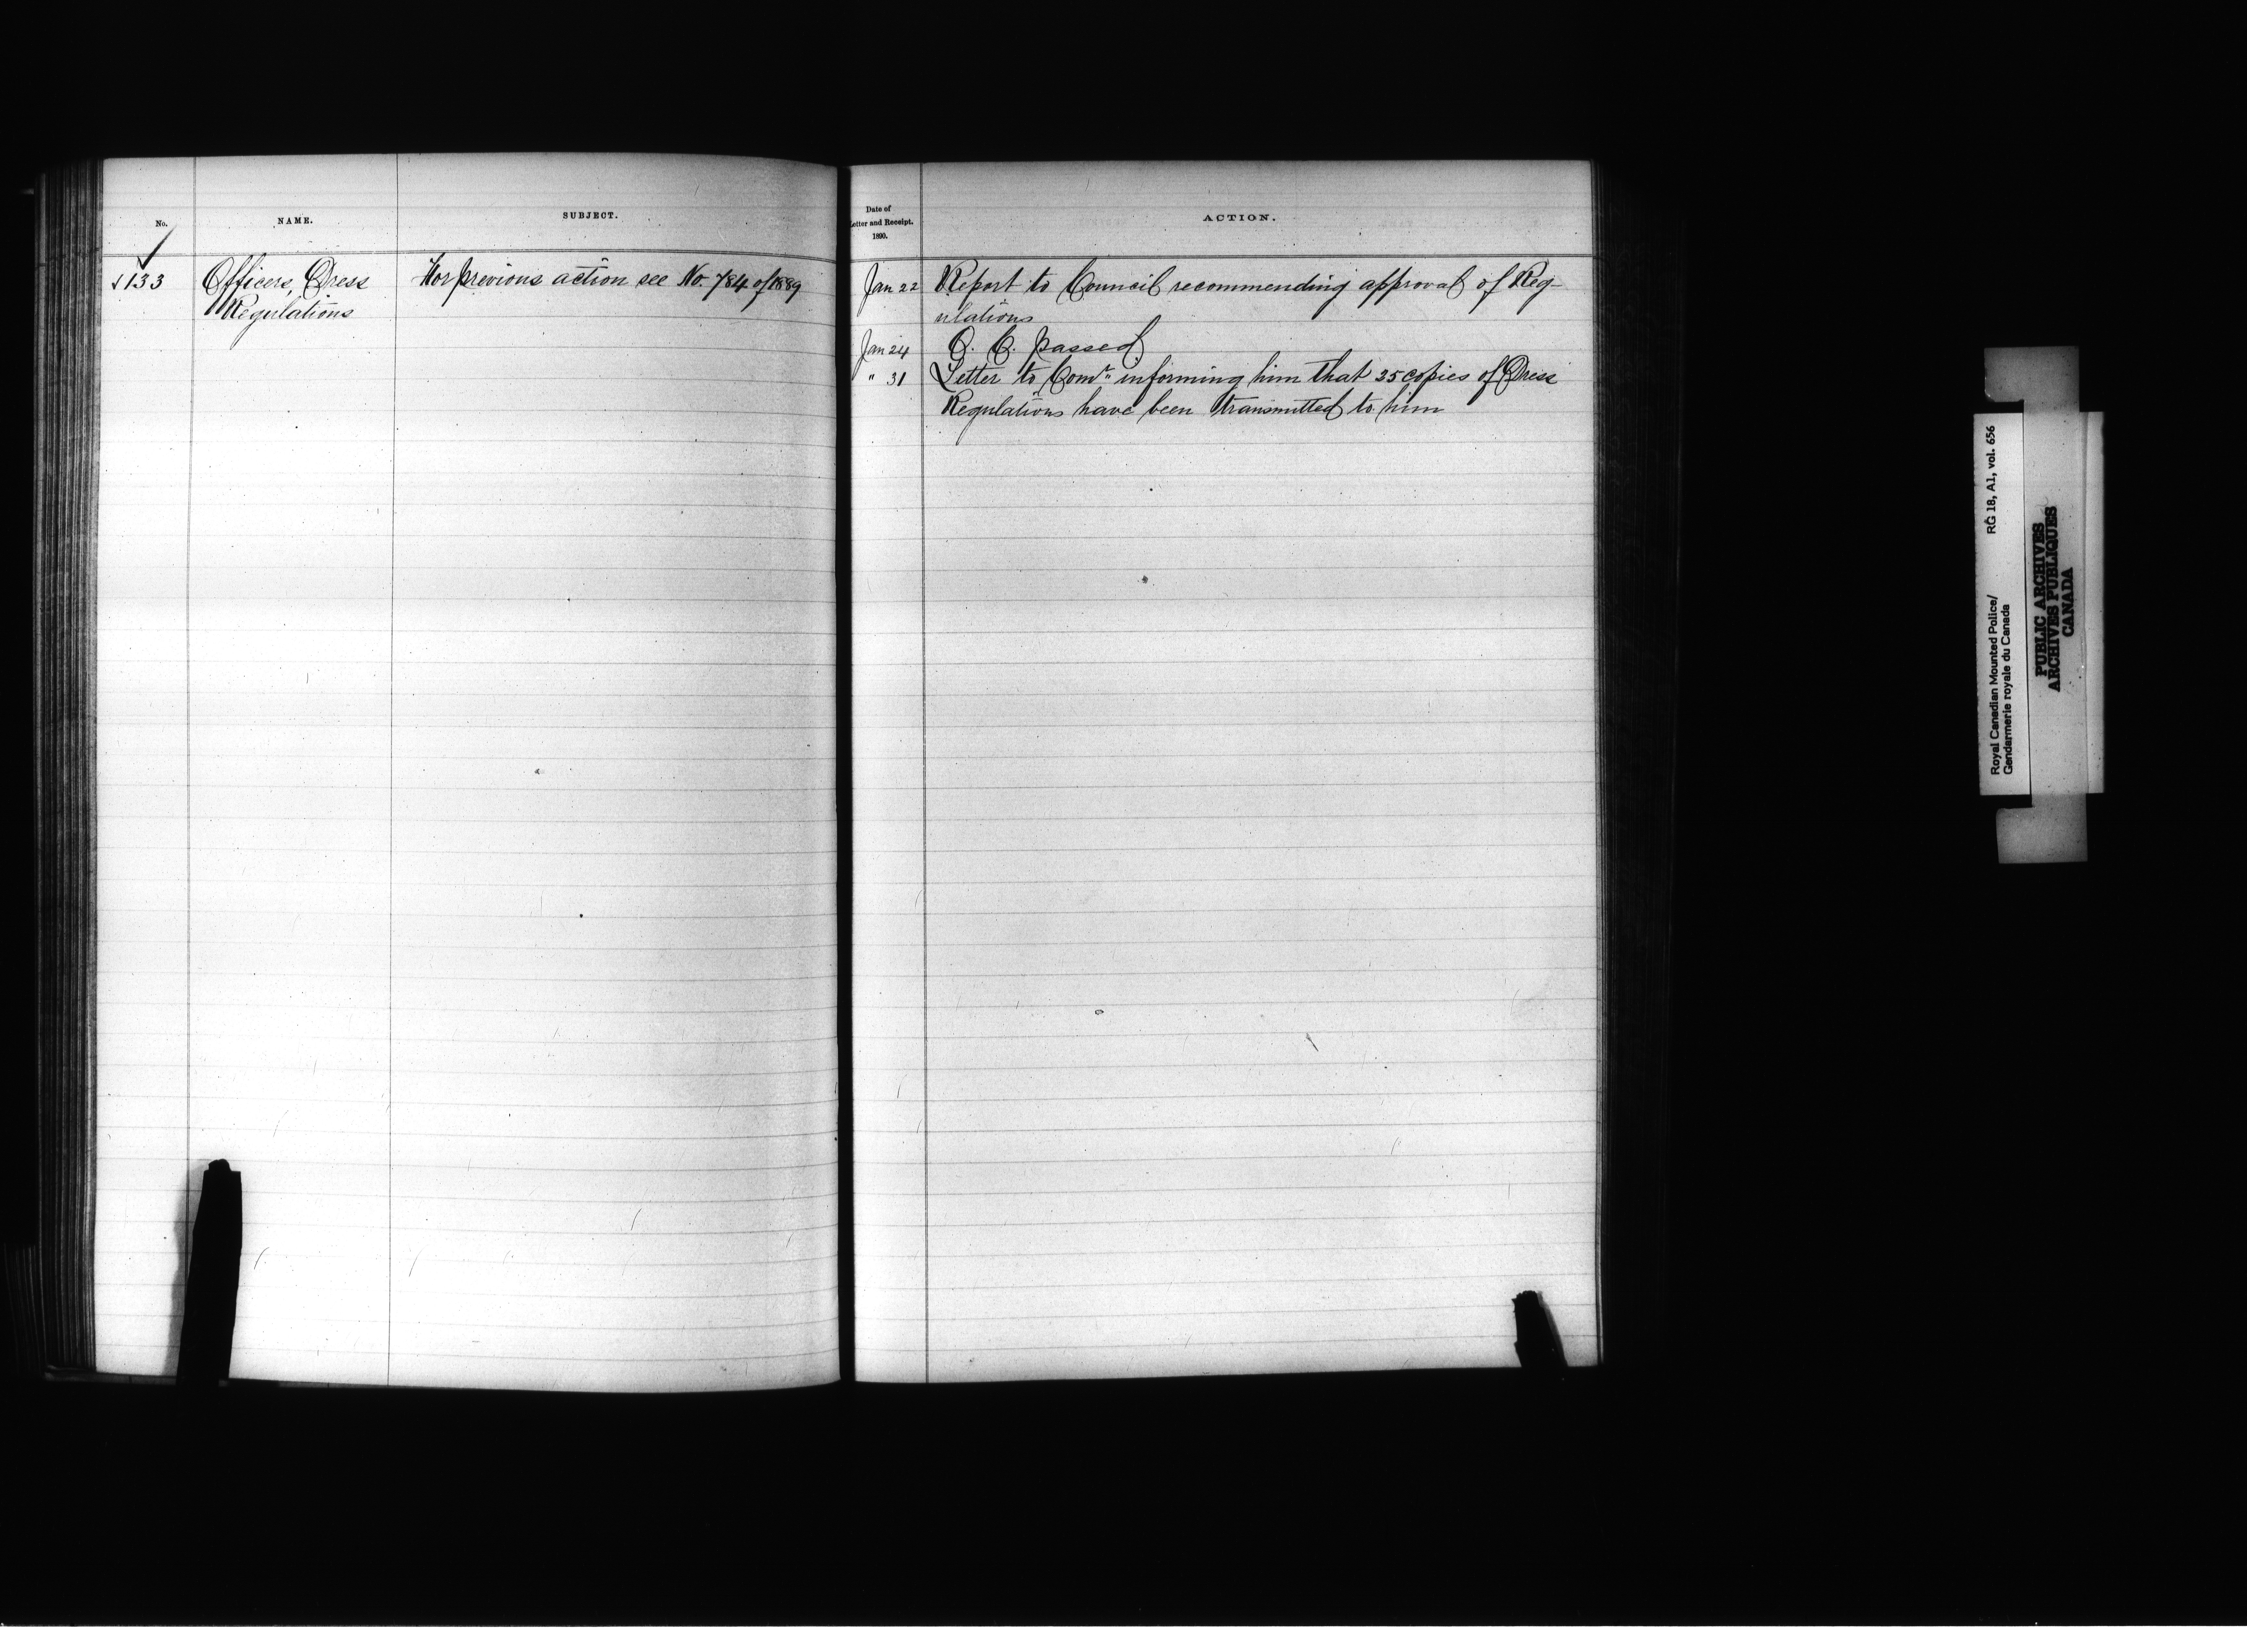 No. NAME. SUBJECT.
✓133 Officers, Dress For previous action see No. 784 of 1889
Regulations
Date of
Letter and Receipt.
1890.
ACTION.
Jan 22 Report to Council recommending approval of Reg-
ulations
Jan 24 O. C. passed
" 31 Letter to Comr. informing him that 35 copies of Dress
Regulations have been transmitted to him
Royal Canadian Mounted Police/ RG 18, A1, vol. 656
Gendarmerie royale du Canada
PUBLIC ARCHIVES
ARCHIVES PUBLIQUES
CANADA